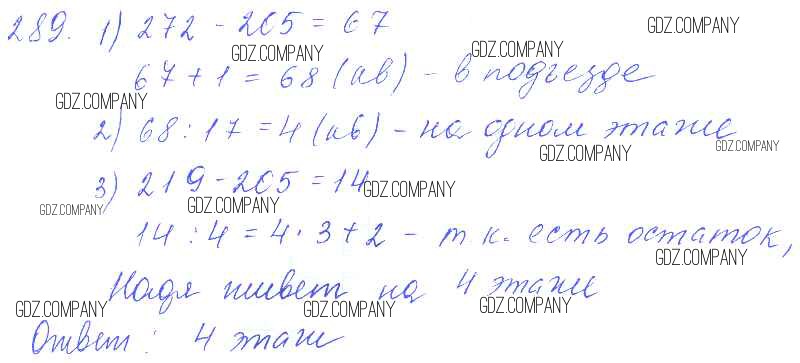 289. 1) 272 - 205 = 67
67 + 1 = 68 (кв) - в подъезде
2) 68 : 17 = 4 (кв) - на одном этаже
3) 219 - 205 = 14
14 : 4 = 4 · 3 + 2 - т к. есть остаток,
Надя живет на 4 этаже
Ответ: 4 этаж
GDZ.COMPANY
GDZ.COMPANY
GDZ.COMPANY
GDZ.COMPANY
GDZ.COMPANY
GDZ.COMPANY
GDZ.COMPANY
GDZ.COMPANY
GDZ.COMPANY
GDZ.COMPANY
GDZ.COMPANY
GDZ.COMPANY
GDZ.COMPANY